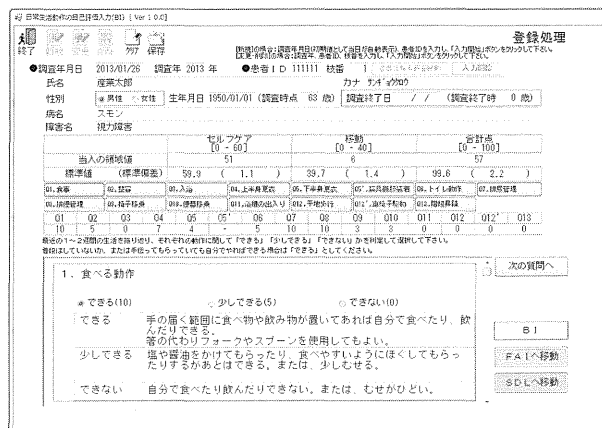 日常生活動作の自己評価入力(BI) [ Ver 1.0.0]
登録処理
終了 クリア 保存
[新規]の場合:調査年月日(初期値として当日が自動表示)、患者IDを入力し、「入力開始」ボタンをクリックして下さい。
[変更・削除]の場合:調査年、患者ID、枝番を入力し、「入力開始」ボタンをクリックして下さい。
●調査年月日 2013/01/26 調査年 2013 年 ●患者ID 111111 枝番 1 入力開始
氏名 産業太郎 カナ サンギョウタロウ
性別 男性 女性 生年月日 1950/01/01 (調査時点 63 歳) 調査終了日 / / (調査終了時 0 歳)
病名 スモン
障害名 視力障害
セルフケア 移動 合計点
[0 - 60] [0 - 40] [0 - 100]
当人の領域値 51 6 57
標準値 (標準偏差) 59.9 ( 1.1 ) 39.7 ( 1.4 ) 99.6 ( 2.2 )
01.食事 02.整容 03.入浴 04.上半身更衣 05.下半身更衣 05'.装具義肢装着 06.トイレ動作 07.排尿管理
08.排便管理 09.椅子移乗 010.便器移乗 011.浴槽の出入り 012.平地歩行 012'.車椅子駆動 013.階段昇降
01 02 03 04 05 05' 06 07 08 09 010 011 012 012' 013
10 5 0 7 4 - 5 10 10 3 3 0 0 0 0
最近の1~2週間の生活を振り返り、それぞれの動作に関して「できる」「少しできる」「できない」かを判定して選択して下さい。
普段はしていないか、または手伝ってもらっていても自分でやればできる場合は「できる」としてください。
1. 食べる動作
次の質問へ
できる(10) 少しできる(5) できない(0)
できる 手の届く範囲に食べ物や飲み物が置いてあれば自分で食べたり、飲
んだりできる。
箸の代わりフォークやスプーンを使用してもよい。
BI
少しできる 塩や醤油をかけてもらったり、食べやすいようにほぐしてもらっ
たりするがあとはできる。または、少しむせる。
FAIへ移動
できない 自分で食べたり飲んだりできない。または、むせがひどい。
SDLへ移動